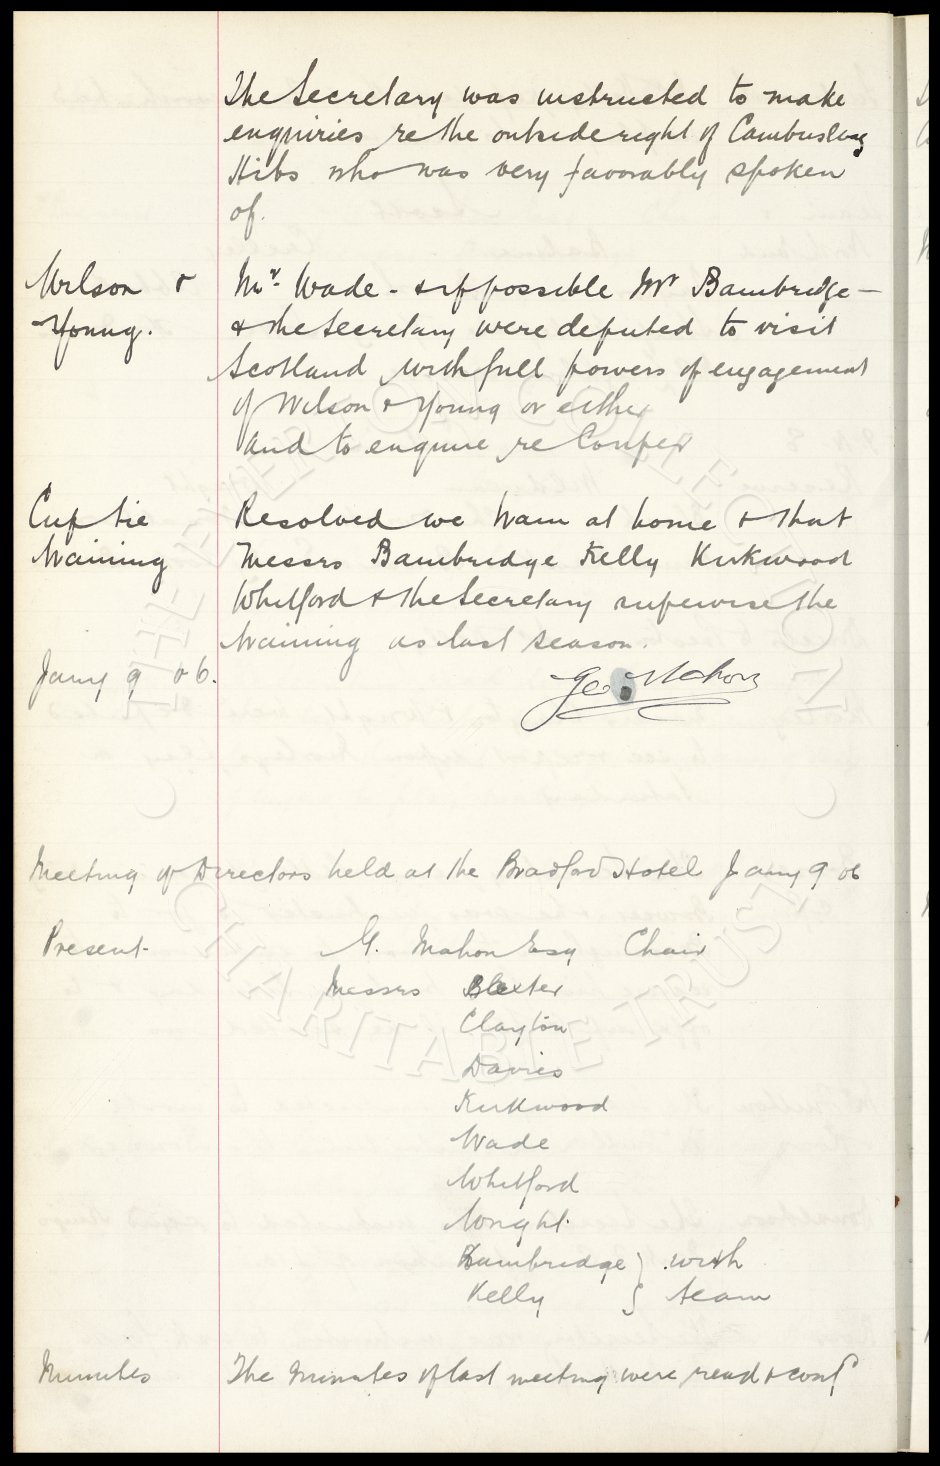 The Secretary was instructed to make
enquiries re the outside right of Cambuslang
Hibs who was very favorably spoken
of.
Wilson &
Young.
Mr. Wade - & if possible Mr Bambridge -
& the Secretary were deputed to visit
Scotland with full powers of engagement
of Wilson & Young or either
and to enquire re Couper
Cup tie
training
Resolved we train at home & that
Messrs Bambridge Kelly Kirkwood
Whitford & the Secretary supervise the
training as last season.
Jany 9 06.
Geo Mahon
Meeting of Directors held at the Bradford Hotel Jany 9 06
Present
G. Mahon Esq Chair
Messrs Baxter
Clayton
Davies
Kirkwood
Wade
Whitford
Wright.
Bambridge } with
Kelly } team
Minutes
The minutes of last meeting were read & conf
THE EVERTON COLLECTION
CHARITABLE TRUST